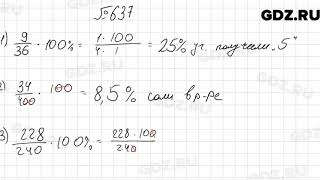 GDZ.RU
№637
1) 9/36 · 100% = 1·100/4·1 = 25% уч. получили "5"
2) 34/400 · 100 = 8,5% соли в р-ре
3) 228/240 · 100% = 228·100/240
GDZ.RU